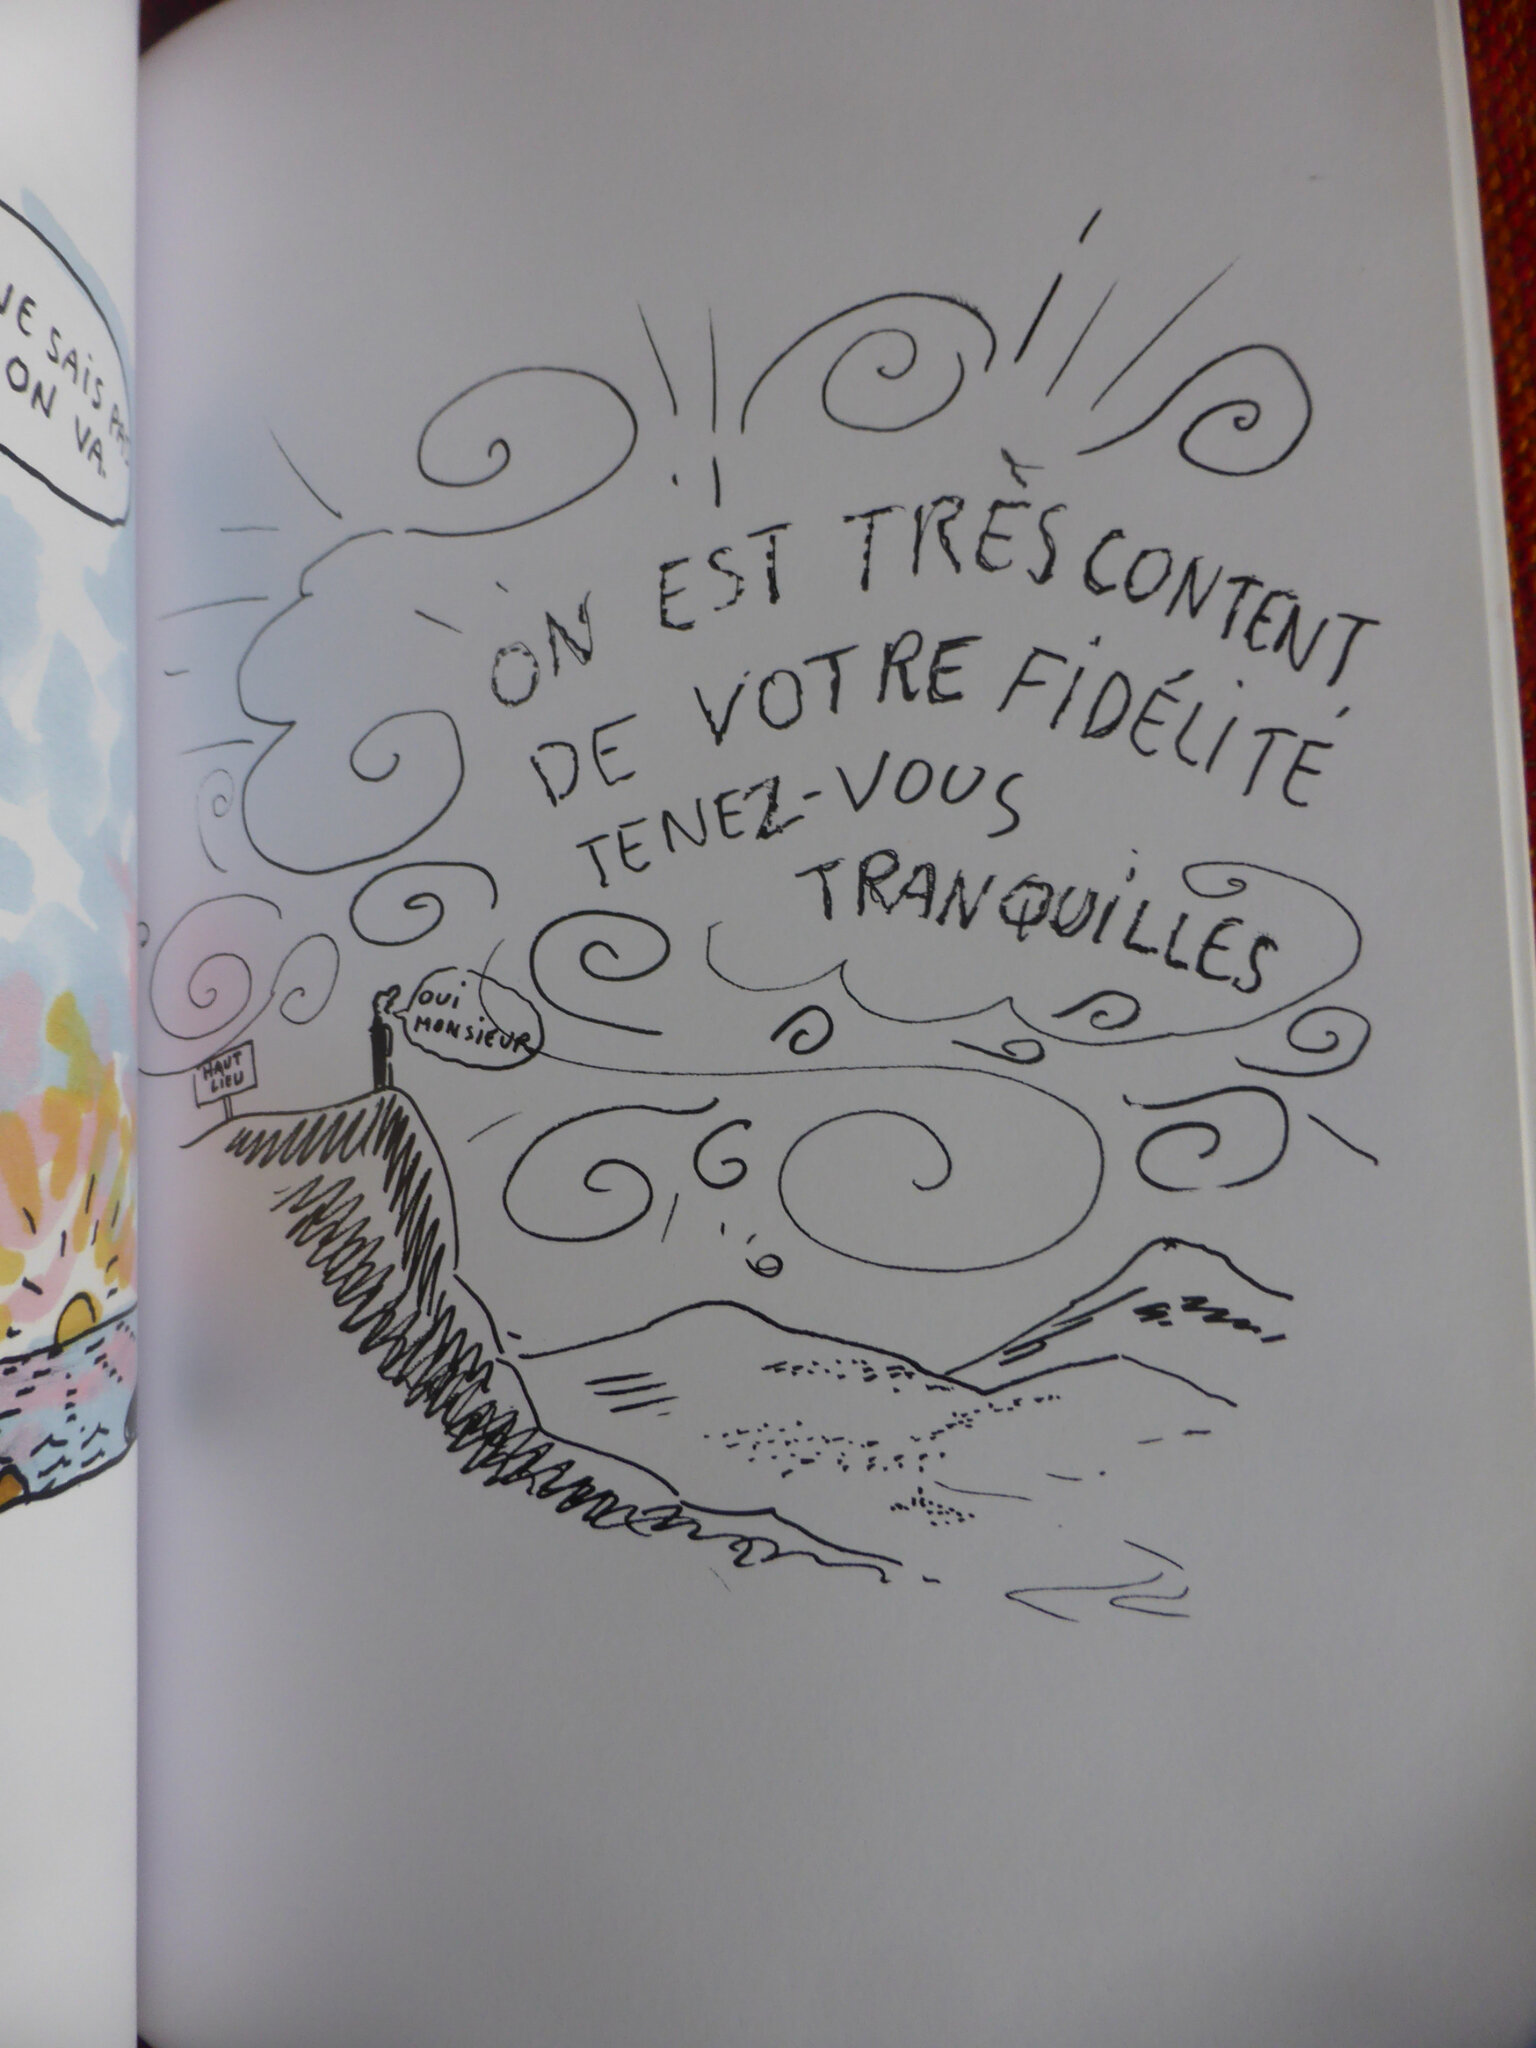 NE SAIS PAS
ON VA.
ON EST TRÈS CONTENT
DE VOTRE FIDÉLITÉ
TENEZ-VOUS
TRANQUILLES
OUI
MONSIEUR
HAUT
LIEU